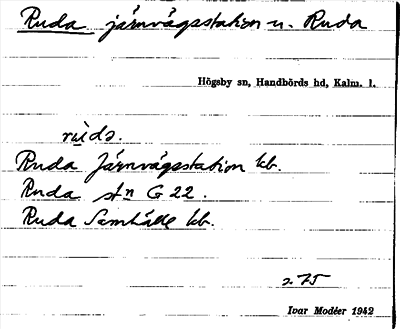 Ruda järnvägsstation u. Ruda
Högsby sn, Handbörds hd, Kalm. l.
rùdа.
Ruda Järnvägsstation kb.
Ruda stn G 22.
Ruda Samhälle kb.
275
Ivar Modéer 1942